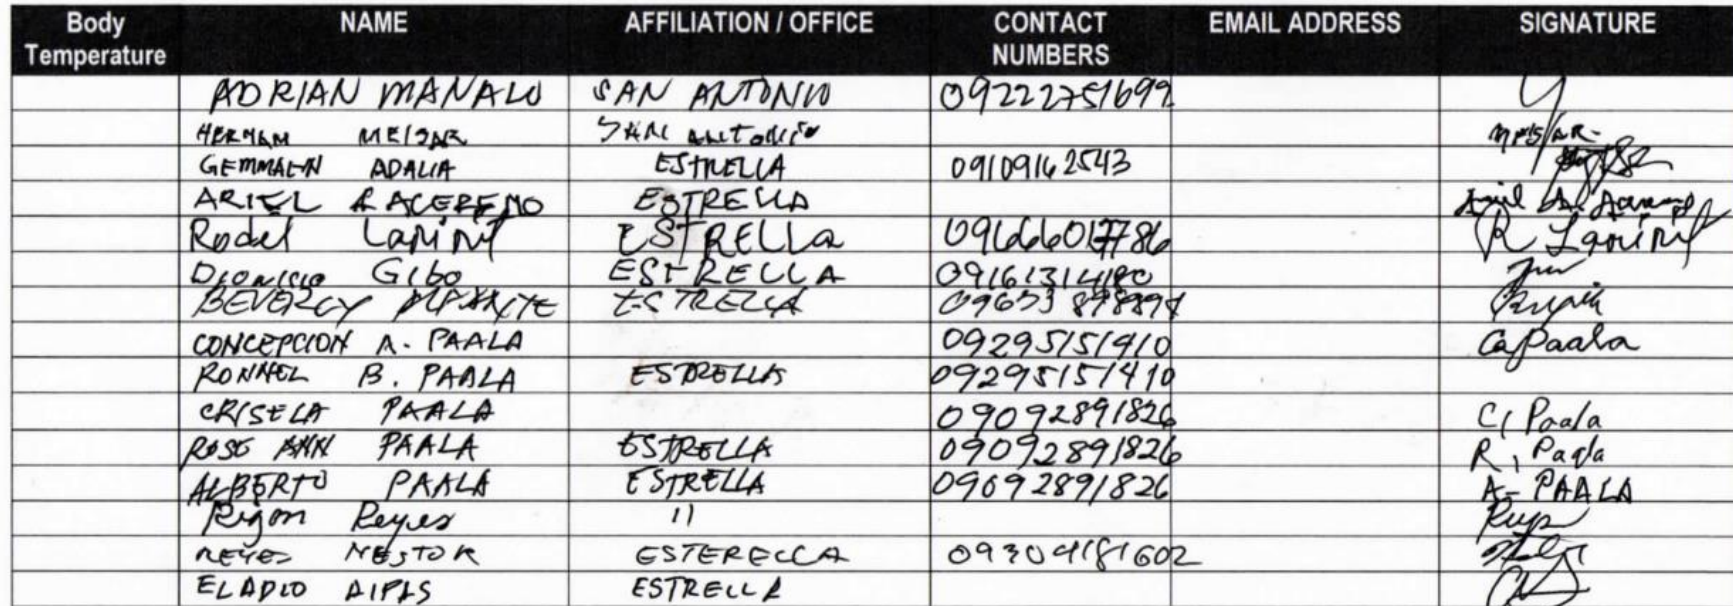 Body Temperature NAME AFFILIATION / OFFICE CONTACT NUMBERS EMAIL ADDRESS SIGNATURE
ADRIAN MANALO SAN ANTONIO 09222751699
HERNAM MEISAR SAN ANTONIO
GEMMALYN ADALIA ESTRELLA 09109162543
ARIEL ESTRELLA
Rodel Lapinit ESTRELLa 091666017786 R Lapinit
Dionicio Gibo ESTRELLA
BEVERLY ESTRELLA
CONCEPCION A. PAALA 09295151410 Ca Paala
RONNEL B. PAALA ESTRELLA 09295151410
CRISELA PAALA 09092891826 C, Paala
ROSE ANN PAALA ESTRELLA 09092891826 R, Paala
ALBERTO PAALA ESTRELLA 09092891826 A- PAALA
Rigon Reyes 11
REYES NESTOR ESTERELLA 09304181602
ELADIO AIPAS ESTRELLA